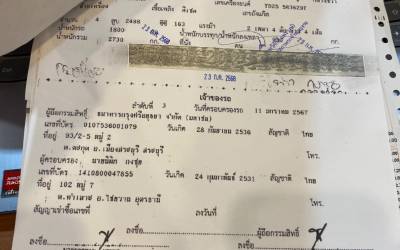 เชื้อเพลิง ดีเซล เลขเครื่องยนต์ YD25
4 สูบ 2488 ซีซี 163 แรงม้า 2 เพลา 4 ล้อ
น้ำหนักรถ 1800 น้ำหนักบรรทุก/น้ำหนักลงเพลา
น้ำหนักรวม 2730 กก. ที่นั่ง คน
23 ก.ค. 2568
เจ้าของรถ
ลำดับที่ 3 วันที่ครอบครองรถ 11 มกราคม 2567
ผู้ถือกรรมสิทธิ์ ธนาคารกรุงศรีอยุธยา จำกัด (มหาชน)
เลขที่บัตร 0107536001079 วันเกิด 28 กันยายน 2536 สัญชาติ ไทย
ที่อยู่ 93/2-5 หมู่ 2
อ.เมืองสระบุรี สระบุรี โทร.
ผู้ครอบครอง
เลขที่บัตร 1410800047855 วันเกิด 24 กุมภาพันธ์ 2531 สัญชาติ ไทย
ที่อยู่ 102 หมู่ 7
อ.ไชยวาน อุดรธานี โทร.
สัญญาเช่าซื้อเลขที่ ลงวันที่
ลงชื่อ ผู้ถือกรรมสิทธิ์ ลงชื่อ